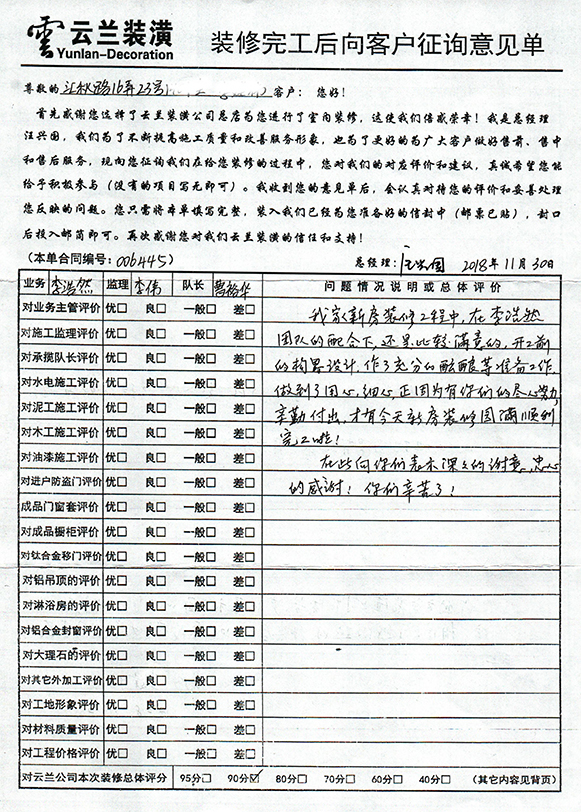 雲 云兰装潢
Yunlan-Decoration
装修完工后向客户征询意见单
尊敬的 汇秋路16弄23号 客户： 您好！
首先感谢您选择了云兰装潢公司总店为您进行了室内装修，这使我们倍感荣幸！我是总经理
汪兴国，我们为了不断提高施工质量和改善服务形象，也为了更好的为广大客户做好售前、售中
和售后服务，现向您征询我们在给您装修的过程中，您对我们的对应评价和建议，真诚希望您能
给予积极参与（没有的项目写无即可）。我收到您的意见单后，会认真对待您的评价和妥善处理
您反映的问题。您只需将本单填写完整，装入我们已经为您准备好的信封中（邮票已贴），封口
后投入邮筒即可。再次感谢您对我们云兰装潢的信任和支持！
（本单合同编号：006445） 总经理：汪兴国 2018年11月30日
业务 李浩然 监理 李伟 队长 曹裕华 问题情况说明或总体评价
对业务主管评价 优□ 良□ 一般□ 差□
对施工监理评价 优□ 良□ 一般□ 差□
对承揽队长评价 优□ 良□ 一般□ 差□
对水电施工评价 优□ 良□ 一般□ 差□
对泥工施工评价 优□ 良□ 一般□ 差□
对木工施工评价 优□ 良□ 一般□ 差□
对油漆施工评价 优□ 良□ 一般□ 差□
对进户防盗门评价 优□ 良□ 一般□ 差□
成品门窗套评价 优□ 良□ 一般□ 差□
对成品橱柜评价 优□ 良□ 一般□ 差□
对钛合金移门评价 优□ 良□ 一般□ 差□
对铝吊顶的评价 优□ 良□ 一般□ 差□
对淋浴房的评价 优□ 良□ 一般□ 差□
对铝合金封窗评价 优□ 良□ 一般□ 差□
对大理石的评价 优□ 良□ 一般□ 差□
对其它外加工评价 优□ 良□ 一般□ 差□
对工地形象评价 优□ 良□ 一般□ 差□
对材料质量评价 优□ 良□ 一般□ 差□
对工程价格评价 优□ 良□ 一般□ 差□
我家新房装修工程中，在李浩然
团队的配合下，还是比较满意的，开工前
的构思设计，作了充分的酝酿等准备工作，
做到了用心，细心，正因为有你们的尽心努力，
辛勤付出，才有今天新房装修圆满顺利
完工啦！
在此向你们表示深深的谢意，忠心
的感谢！你们辛苦了！
对云兰公司本次装修总体评分 95分□ 90分☑ 80分□ 70分□ 60分□ 40分□ （其它内容见背页）